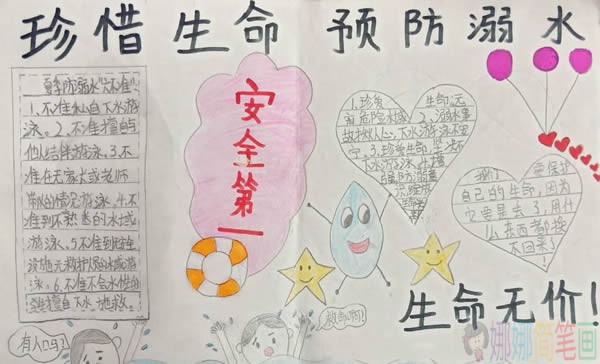 珍惜生命 预防溺水
夏季防溺水"六不准"
1.不准私自下水游
泳。2.不准擅自与
他人结伴游泳。3.不
准在无家长或老师
带队的情况游泳。4.不
准到不熟悉的水域
游泳。5.不准到无
设施无救护人员的水域游
泳。6.不准不会水性的
擅自下水施救。
安全第一
1.珍爱生命,远
离危险水域。2.溺水事
故揪人心,下水游泳不安
宁。3.珍爱生命,坚决不
下水游泳。4.
我们要保护
自己的生命,因为
它要是丢了,用什
么东西都换
不回来了!
生命无价!
有人吗?
救命啊!
娜娜简笔画